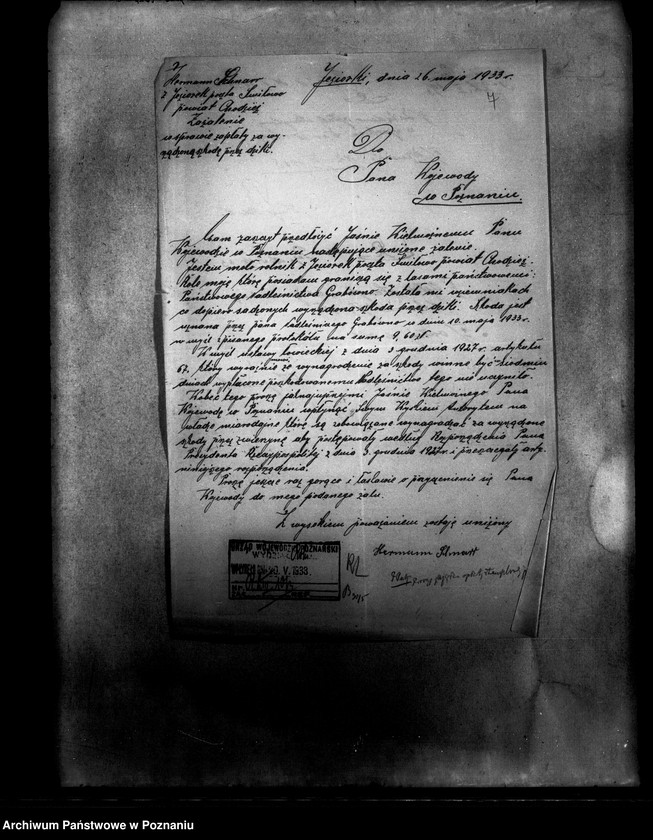 Hermann
z Jeziorek poczta Śmiłowo
powiat Chodzież
Zażalenie
w sprawie zapłaty za wy-
rządzoną szkodę przez dziki.
Jeziorki, dnia 26. maja 1933 r.
Do
Pana Wojewody
w Poznaniu.
Mam zaszczyt przedłożyć Jaśnie Wielmożnemu Panu
Wojewodzie w Poznaniu następujące uniżone żalenie.
Jestem mało rolnik z Jeziorek poczta Śmiłowo powiat Chodzież.
Rolę moją którą posiadam graniczą się z lasami państwowemi
Państwowego Nadleśnictwa Grabówno. Została mi w ziemniakach
co dopiero sadzonych wyrządzona szkoda przez dziki. Szkoda jest
uznana przez pana Nadleśniczego Grabówno w dniu 10. maja 1933 r.
w myśl spisanego protokółu na sumę 9,60 zł.
W myśl ustawy łowieckiej z dnia 3 grudnia 1927 r. artykułu
67. który wyraźnie że wynagrodzenie za szkody winne być siedmiu
dniach wypłacone poszkodowanemu Nadleśnictwo tego nie uczyniło.
Wobec tego proszę jaknajuprzejmiej Jaśnie Wielmożnego Pana
Wojewodę w Poznaniu wpłynąć Swym Wysokiem na
władze miarodajne które są zobowiązane wynagradzać za wyrządzone
szkody przez zwierzynę aby postępowały według Rozporządzenia Pana
Prezydenta Rzeczypospolitej z dnia 3. grudnia 1927 r. i przestrzegały
niniejszego rozporządzenia.
Proszę jeszcze raz gorąco i łaskawie o przyczynienie się Pana
Wojewody do mego podanego żalu.
Z wysokiem poważaniem zostaję uniżony
Hermann
URZĄD WOJEWÓDZKI POZNAŃSKI
WYDZIAŁ
WPŁYNĘŁO 30. V. 1933
Archiwum Państwowe w Poznaniu